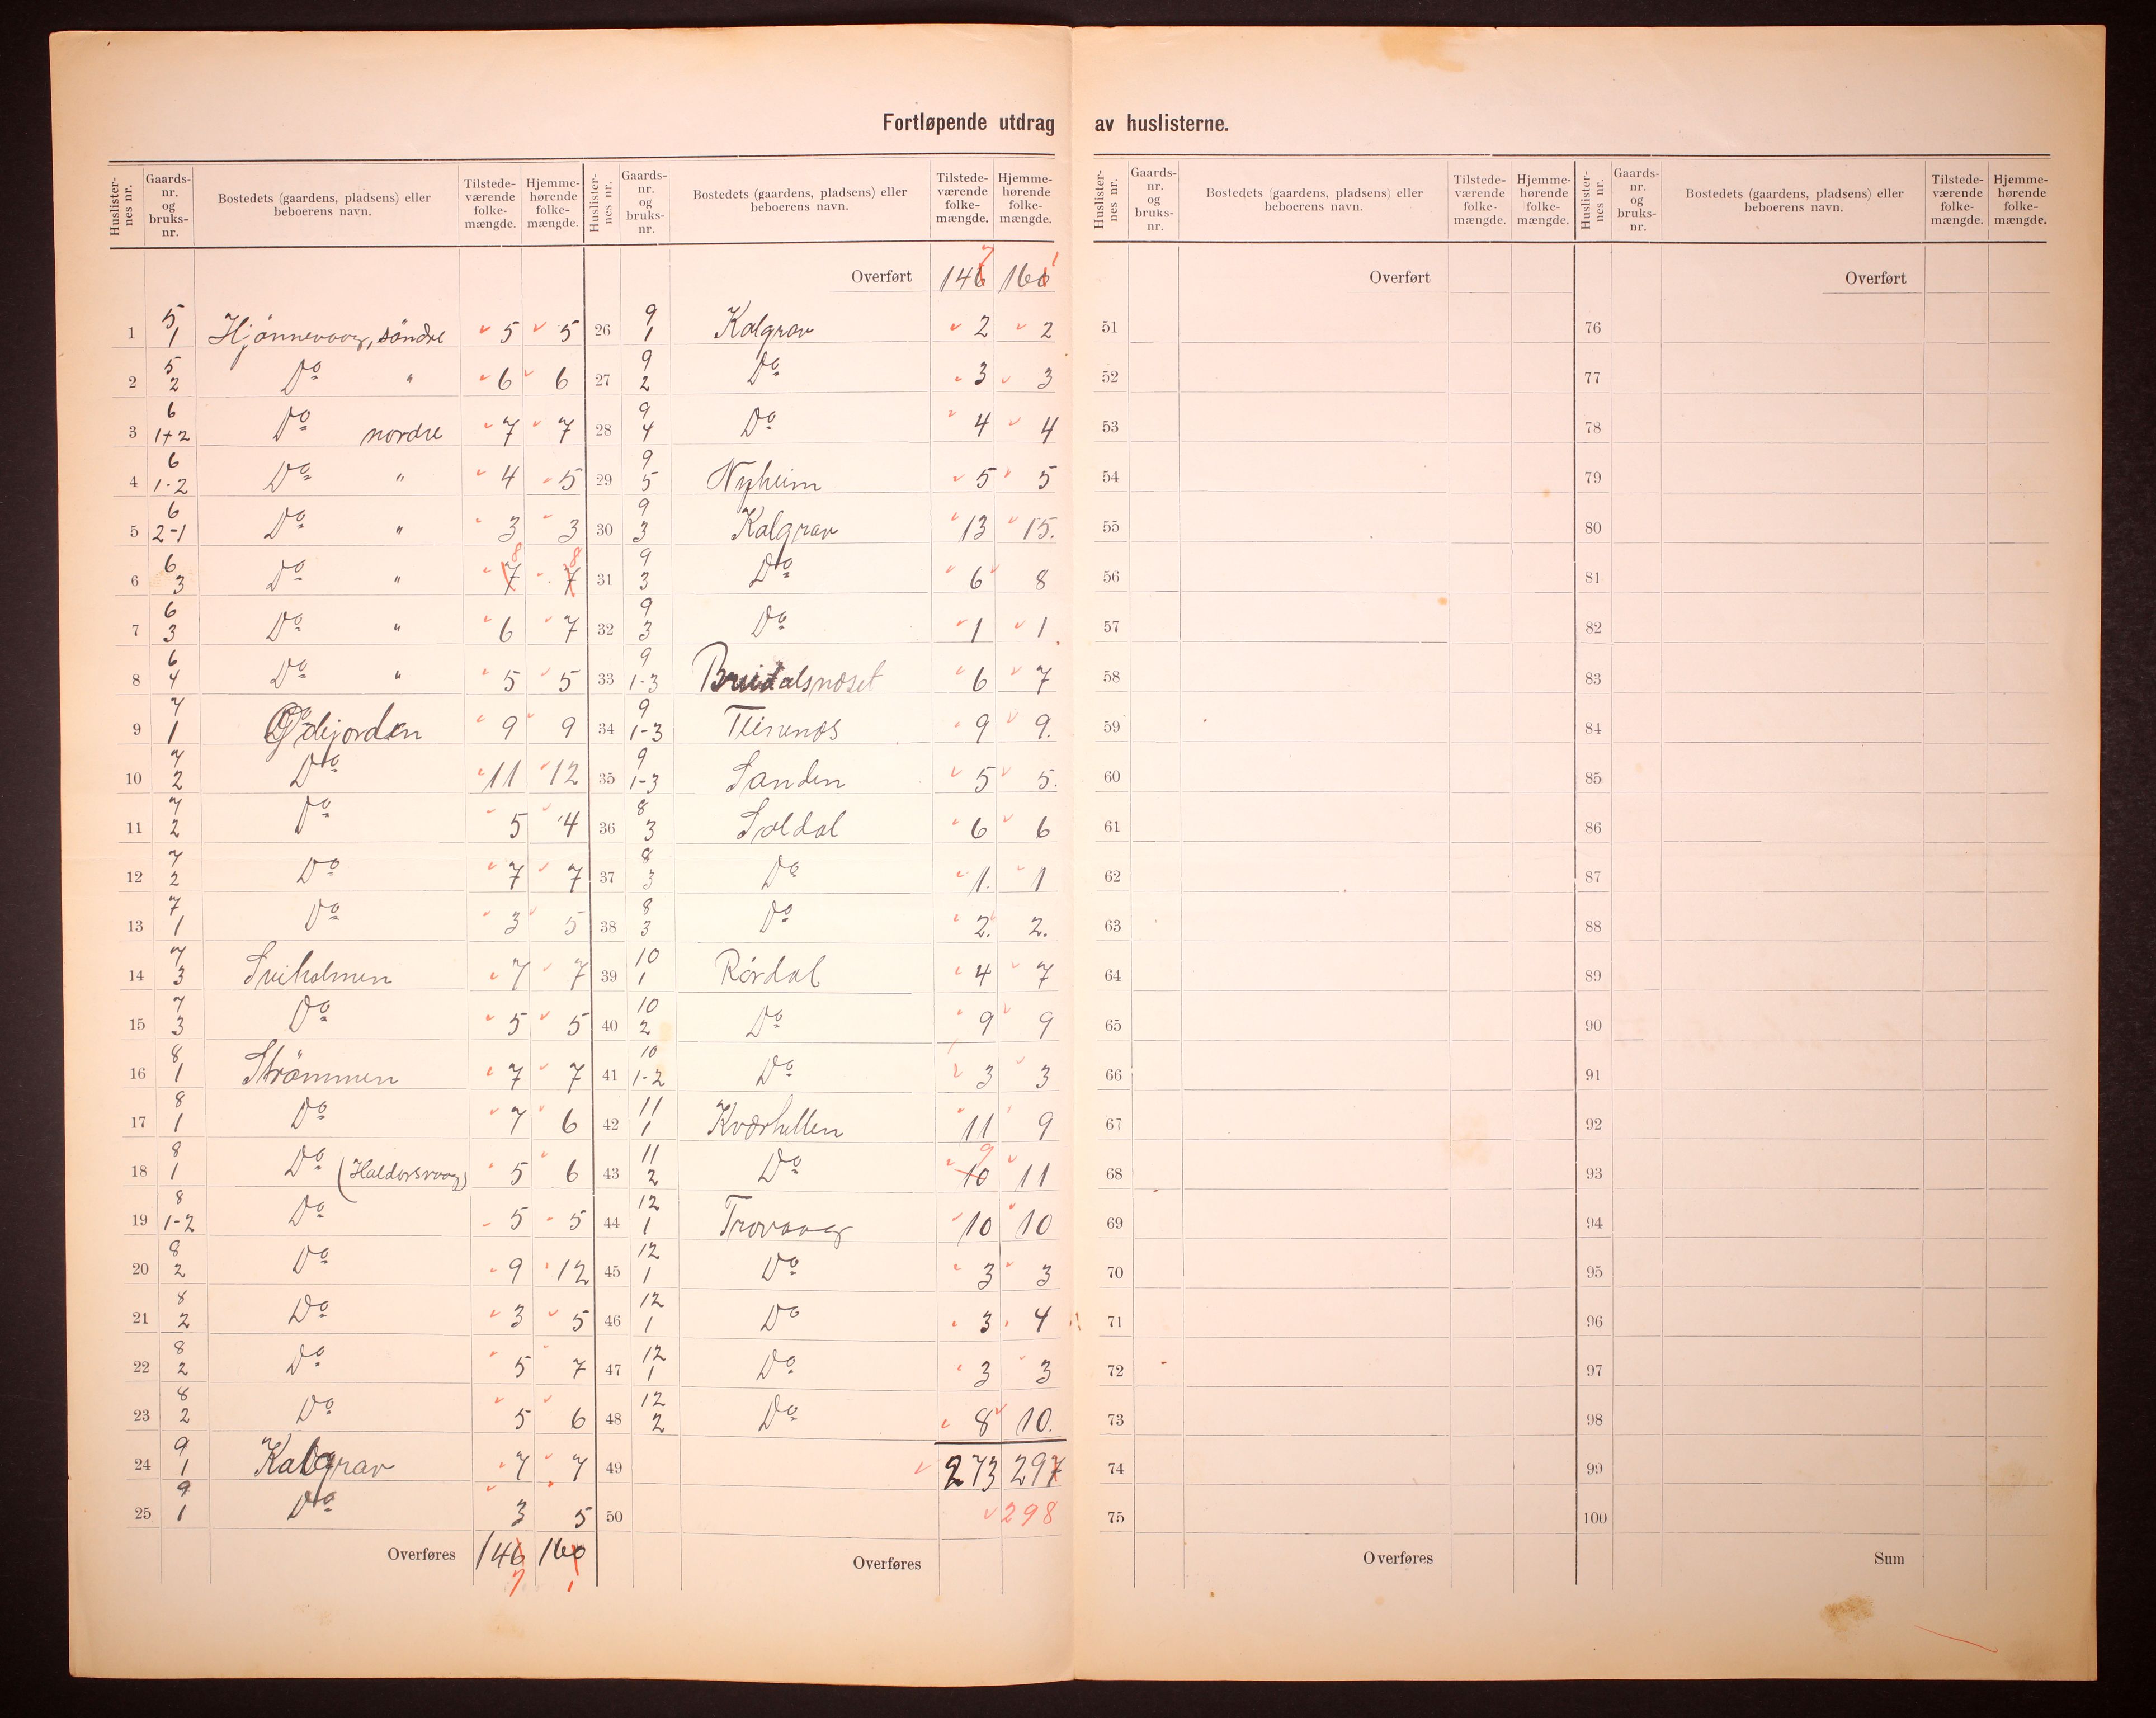 Fortløpende utdrag av huslisterne.
Huslister-nes nr. Gaards-nr. og bruks-nr. Bostedets (gaardens, pladsens) eller beboerens navn. Tilstede-værende folke-mængde. Hjemme-hørende folke-mængde.
1 5 1 Hjönnevaag, söndre 5 5
2 5 2 Do " 6 6
3 6 1+2 Do nordre 7 7
4 6 1-2 Do " 4 5
5 6 2-1 Do " 3 3
6 6 3 Do " 7 8 7 8
7 6 3 Do " 6 7
8 6 4 Do " 5 5
9 7 1 9 9
10 7 2 Do 11 12
11 7 2 Do 5 4
12 7 2 Do 7 7
13 7 1 Do 3 5
14 7 3 Sveholmen 7 7
15 7 3 Do 5 5
16 8 1 Strömmen 7 7
17 8 1 Do 7 6
18 8 1 Do (Haldorsvaag) 5 6
19 8 1-2 Do 5 5
20 8 2 Do 9 12
21 8 2 Do 3 5
22 8 2 Do 5 7
23 8 2 Do 5 6
24 9 1 Kalgrav 7 7
25 9 1 Do 3 5
Overføres 146 7 160 1
Huslister-nes nr. Gaards-nr. og bruks-nr. Bostedets (gaardens, pladsens) eller beboerens navn. Tilstede-værende folke-mængde. Hjemme-hørende folke-mængde.
Overført 146 7 160 1
26 9 1 Kalgrav 2 2
27 9 2 Do 3 3
28 9 4 Do 4 4
29 9 5 Nyheim 5 5
30 9 3 Kalgrav 13 15.
31 9 3 Do 6 8
32 9 3 Do 1 1
33 9 1-3 6 7
34 9 1-3 9 9.
35 9 1-3 Sanden 5 5.
36 8 3 Soldal 6 6
37 8 3 Do 1. 1
38 8 3 Do 2. 2.
39 10 1 Rördal 4 7
40 10 2 Do 9 9
41 10 1-2 Do 3 3
42 11 1 Kværhellen 11 9
43 11 2 Do 10 9 11
44 12 1 Trovaag 10 10
45 12 1 Do 3 3
46 12 1 Do 3 4
47 12 1 Do 3 3
48 12 2 Do 8 10.
49 273 297
50 298
Overføres
Huslister-nes nr. Gaards-nr. og bruks-nr. Bostedets (gaardens, pladsens) eller beboerens navn. Tilstede-værende folke-mængde. Hjemme-hørende folke-mængde.
Overført
51
52
53
54
55
56
57
58
59
60
61
62
63
64
65
66
67
68
69
70
71
72
73
74
75
Overføres
Huslister-nes nr. Gaards-nr. og bruks-nr. Bostedets (gaardens, pladsens) eller beboerens navn. Tilstede-værende folke-mængde. Hjemme-hørende folke-mængde.
Overført
76
77
78
79
80
81
82
83
84
85
86
87
88
89
90
91
92
93
94
95
96
97
98
99
100
Sum